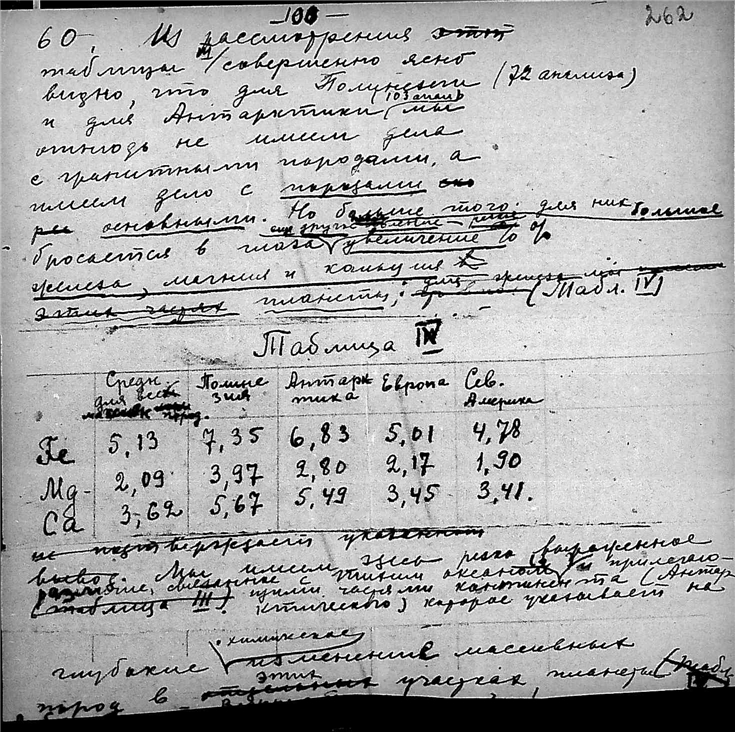 — 100 —
262
60. Из рассмотрения этой
таблицы совершенно ясно
видно, что для Полинезии (72 анализа)
и для Антарктики (103 анал.) мы
отнюдь не имеем дела
с гранитными породами, а
имеем дело с породами
основными. Но больше того: для них большое
бросается в глаза увеличение %
железа, магния и кальция
этих частях планеты, (Табл. IV)
Таблица IV
Средн. для всех пород. Полинезия Антарктика Европа Сев. Америка
Fe 5,13 7,35 6,83 5,01 4,78
Mg 2,09 3,97 2,80 2,17 1,90
Ca 3,62 5,67 5,49 3,45 3,41.
не подтверждает указанный
вывод. Мы имеем здесь резко выраженное
различие, связанное с Тихим океаном и прилегаю-
(таблица III) щими частями континента (Антар-
ктического) которое указывает на
химическое
глубокие изменения массивных
этих
пород в отдельных участках планеты (Табл.
IV